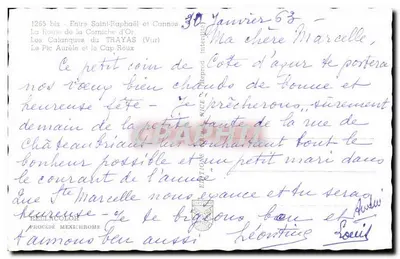 1265 bis - Entre Saint-Raphaël et Cannes
La Route de la Corniche d'Or
Les Calanques du TRAYAS (Var)
Le Pic Aurèle et le Cap Roux
30 Janvier 63 -
Ma chère Marcelle,
Ce petit coin de Cote d'azur te portera
nos vœux bien chauds de bonne et
heureuse fête - Je sûrement
demain de la petite tante de la rue de
Châteaubriant en souhaitant tout le
bonheur possible et un petit mari dans
le courant de l'année
Que Ste Marcelle nous exauce et tu seras
heureuse - Je te bigeons bien et
t'aimons ben aussi Léontine
Louis
PROCÉDÉ MEXICHROME